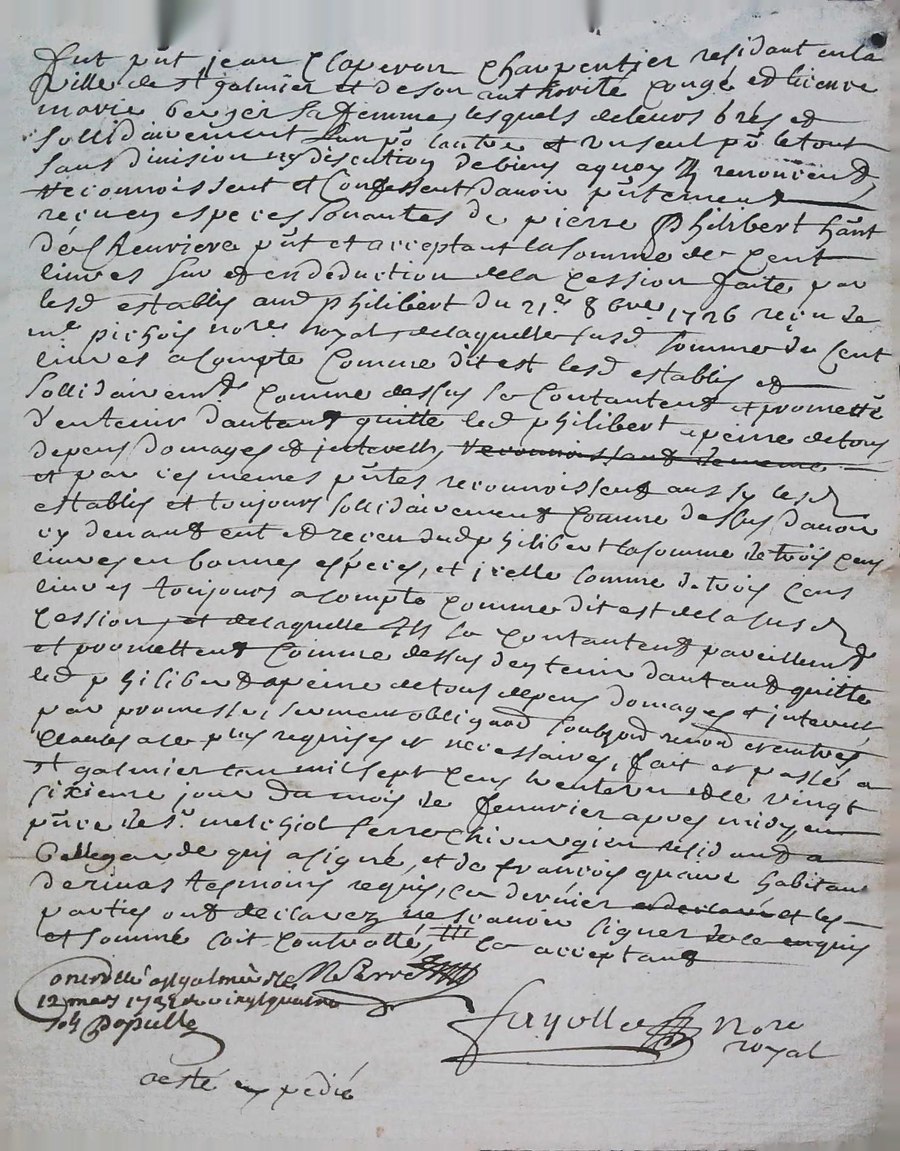 fut pnt jean Claperon charpentier residant en la
ville de st galmier et de son authorité congé et licence
marie berger sa femme, lesquels de leurs grés et
sollidairement l'un po lautre et un seul po le tout
sans division ny discution de biens a quoy ils renoncent,
reconnoissent et confessent d'avoir pntement
receu en especes sonantes de pierre philibert hānt
de Chevriere pnt et acceptant la somme de cent
livres sur et en deduction de la cession faite par
lesd establis aud philibert du 21e 8bre 1726 receu de
me pichois nore royal, de laquelle susd somme de cent
livres a compte comme dit est lesd establis et
sollidairemt comme dessus se contantent et promette
d'en tenir d'autant quitte led philibert a peine de tous
depens domages et interests, reconnoissant de meme
et par ces memes pntes reconnoissent aussy lesd
establis et toujours sollidairement comme dessus d'avoir
cy devant eut et receu dud philibert la somme de trois cens
livres en bonnes espéces, et icelle somme de trois cens
livres toujours a compte comme dit est de la susd
cession, et de laquelle ils se contantent pareillemt
et promettent comme dessus d'en tenir d'autant quitte
led philibert a peine de tous depens domages et interest
par promesse, serment obligaõn soubzõn renõn et autres
clauses a ce plus requises et necessaires, fait et passé a
st galmier l'an mil sept cens trente un et le vingt
sixieme jour du mois de fevrier apres midy, en
pnce de sr melchiol serre chirurgien residant a
bellegarde qui a signé, et de francois quant habitant
de rivas tesmoins requis, ce dernier et les
parties ont declarez ne scavoir signer de ce enquis
et sommé soit controllé, se acceptant
Controllé a st galmier le M Serre
12 mars 1731 vingt quatre
sols Populle
fayolle nore
royal
a esté expedié